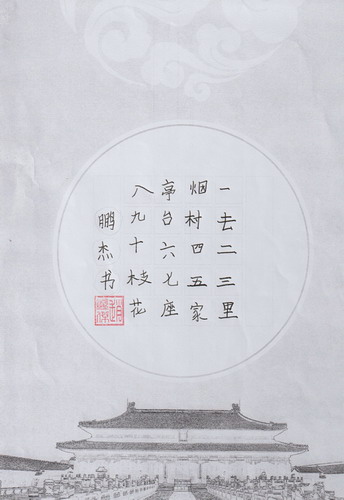 一去二三里
烟村四五家
亭台六七座
八九十枝花
鹏杰书